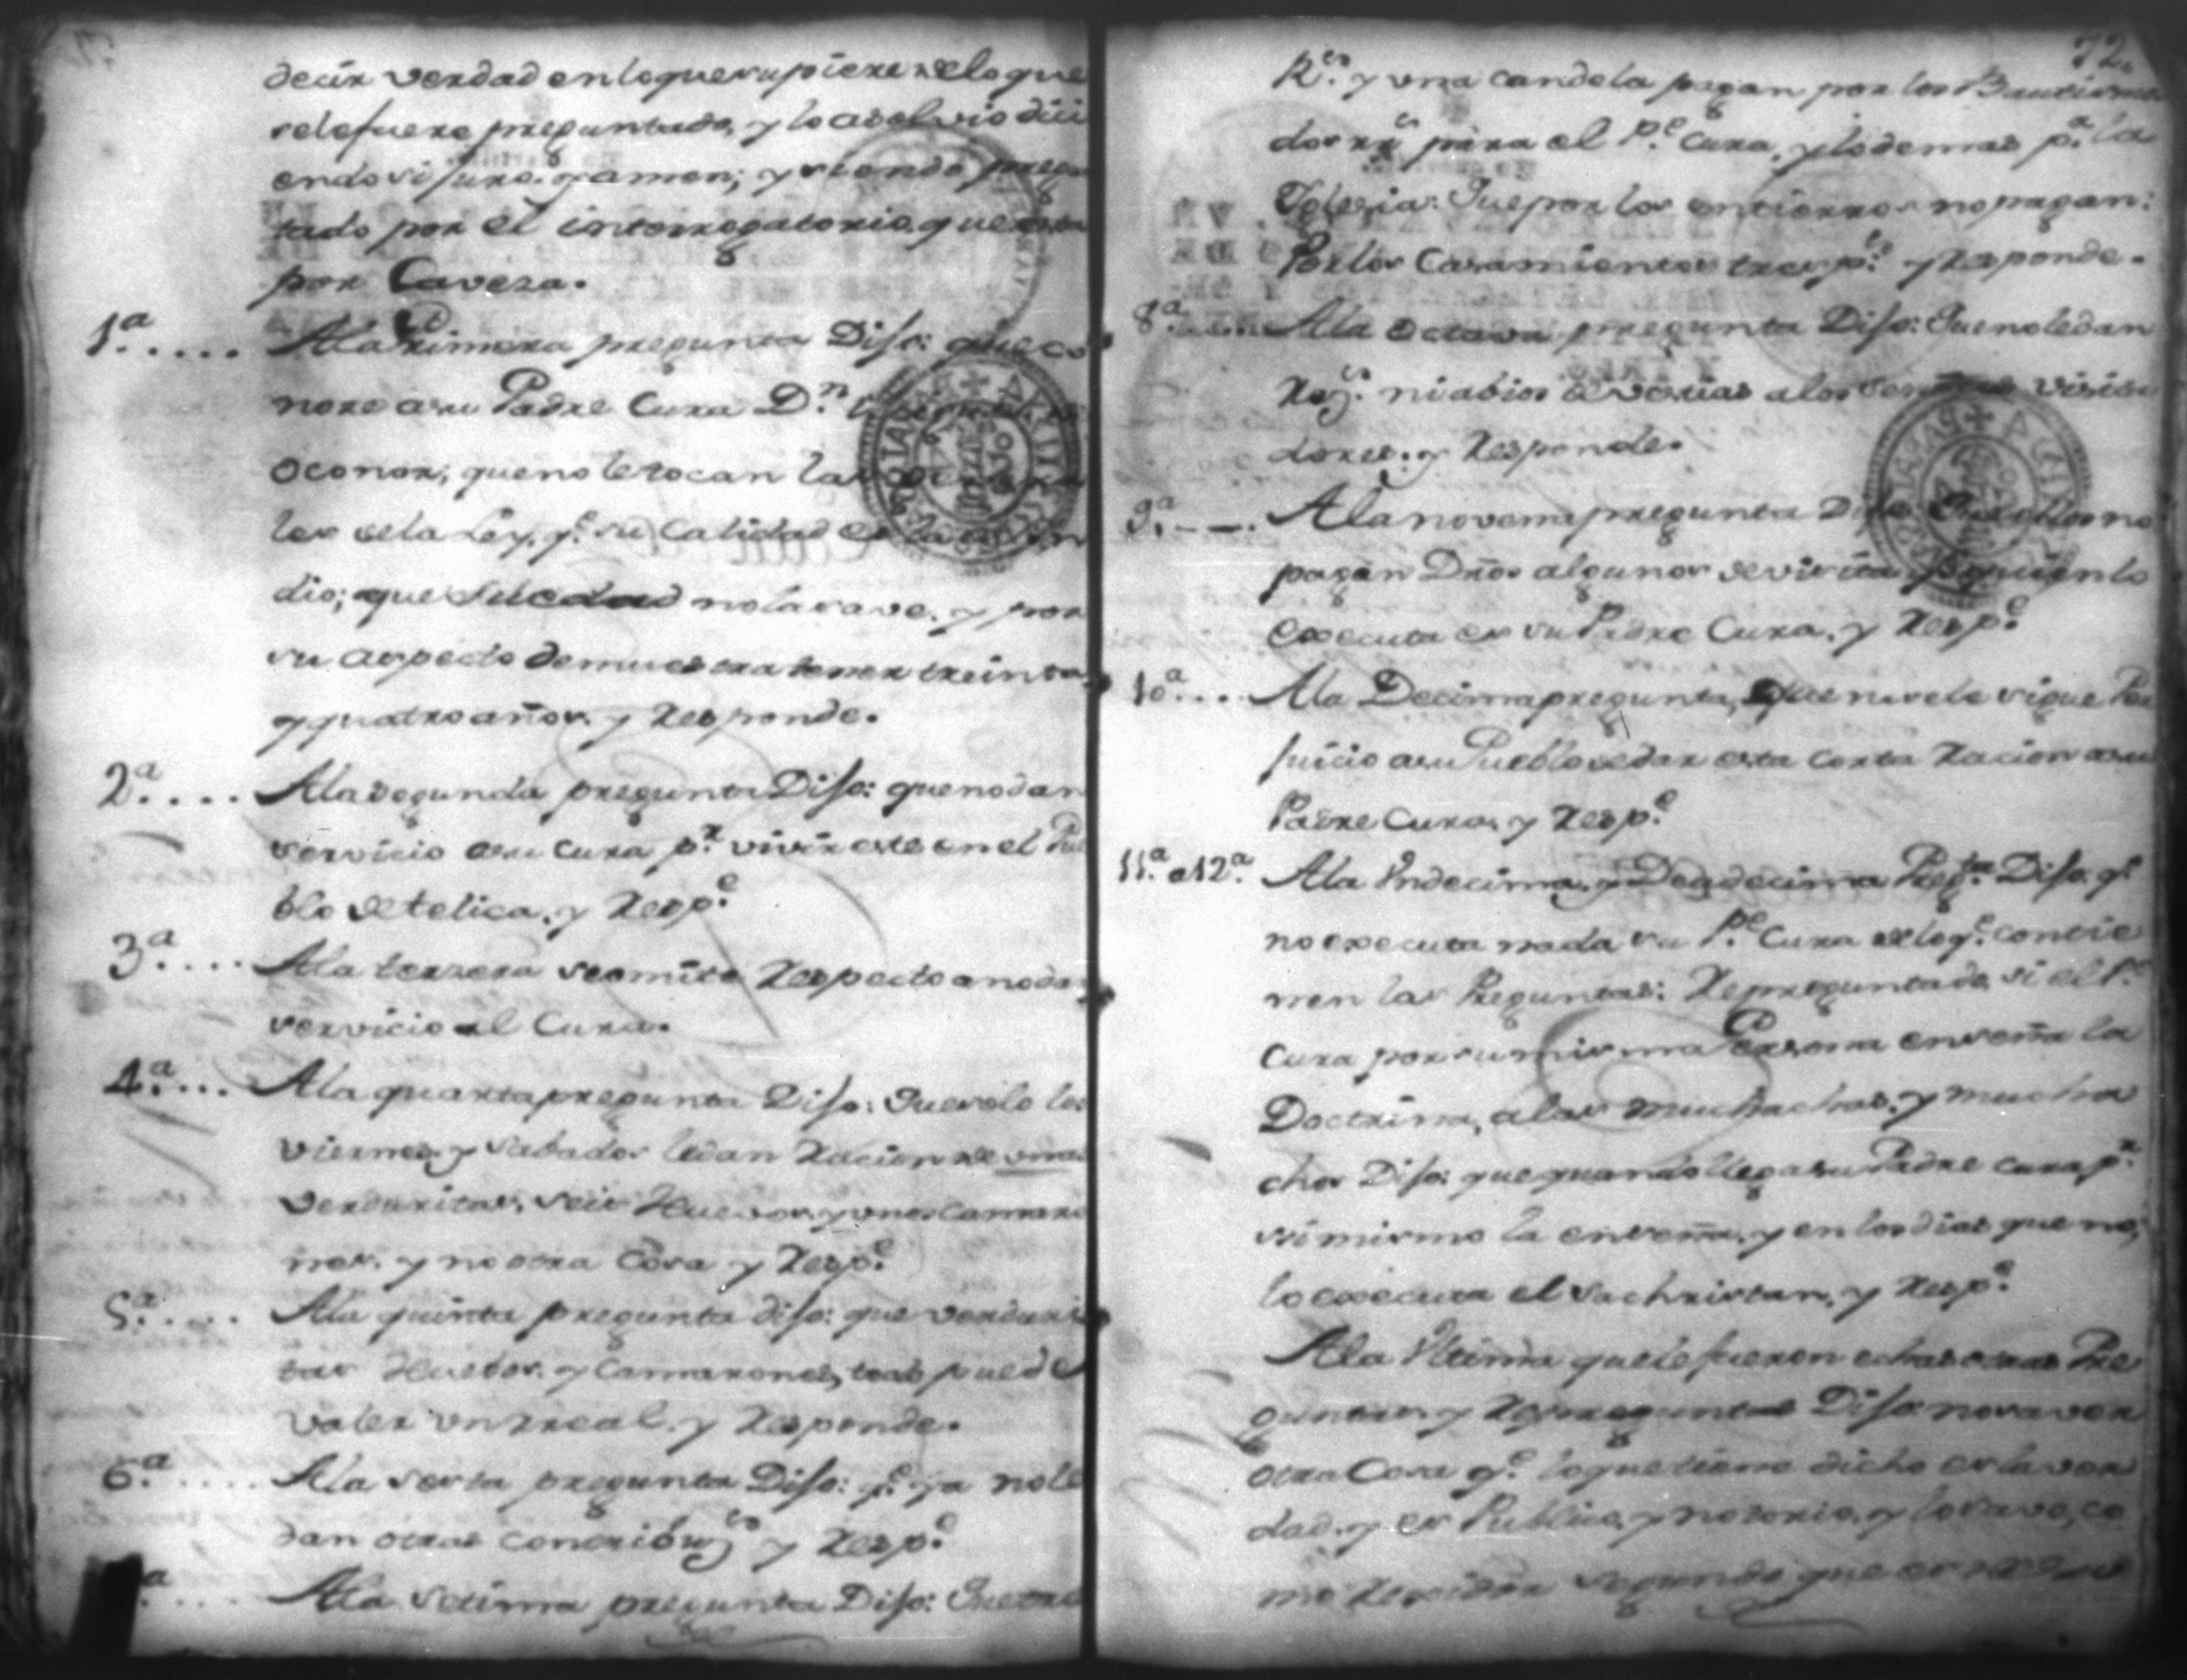 decir verdad en lo que supiere de lo que
se le fuere preguntado, y lo absolvio dici
endo si juro. y amen; y siendo pregu
tado por el interrogatorio que esta
por Caveza.
1.ª..... A la Primera pregunta Diso: que co
nose a su Padre Cura D.n
Oconor, que no le tocan las Genera
les de la Ley, q.e su Calidad es la de Yn
dio; que su edad no la save, y por
su aspecto demuestra tener treinta
y quatro años, y Responde.
2.ª.... A la segunda pregunta Diso: que no dan
servicio a su Cura p.r vivir este en el Pue
blo de telica, y Resp.e
3.ª.... A la tersera se omite Respecto a no da
servicio al Cura.
4.ª.... A la quarta pregunta Diso: Que solo los
viernes, y sabados le dan Racion de unas
verduritas, seis Huevos, y unos Camaro
nes, y no otra Cosa y Resp.e
5.ª.... A la quinta pregunta diso: que verduri
tas Huebos, y Camarones, todo puede
valer un rreal, y Responde.
6.ª.... A la sexta pregunta Diso: q.e ya no le
dan otras y Resp.e
ª.... A la setima pregunta Diso: Que tre
72.
R.s y una candela pagan por los Bautismos
dos rr.s para el P.e Cura, y lo demas p.a la
Yglesia: Que por los entierros no pagan:
Por los Casamientos tres p.s y Responde.
8.ª..... A la octava pregunta Diso: Que no le dan
ni abios de vestias a los Señores Visita
dores, y Responde.
9.ª.--. A la novena pregunta Diso Que ellos no
pagan Dros algunos de visita, y quien lo
executa es su Padre Cura, y Resp.e
10.ª.... A la Decima pregunta, Que no se le sigue Per
juicio a su Pueblo de dar esta corta Racion a su
Padre Cura, y Resp.e
11.ª a 12.ª A la Undecima, y Deudecima Preg.ta Diso: q.e
no executa nada su P.e Cura de lo q.e contie
nen las Preguntas: Repreguntado si el P.e
Cura por su misma Persona enseña la
Doctrina, a las muchachas, y mucha
chos Diso: que quando llega su Padre cura p.r
si mismo la enseña, y en los dias que no,
lo executa el Sachristan, y Resp.e
A la Ultima que le fueron echas otras Pre
guntas, y Repreguntas Diso no saver
otra Cosa q.e lo que tiene dicho es la ver
dad, y es Publico, y notorio, y lo save, co
mo Regidor segundo que es